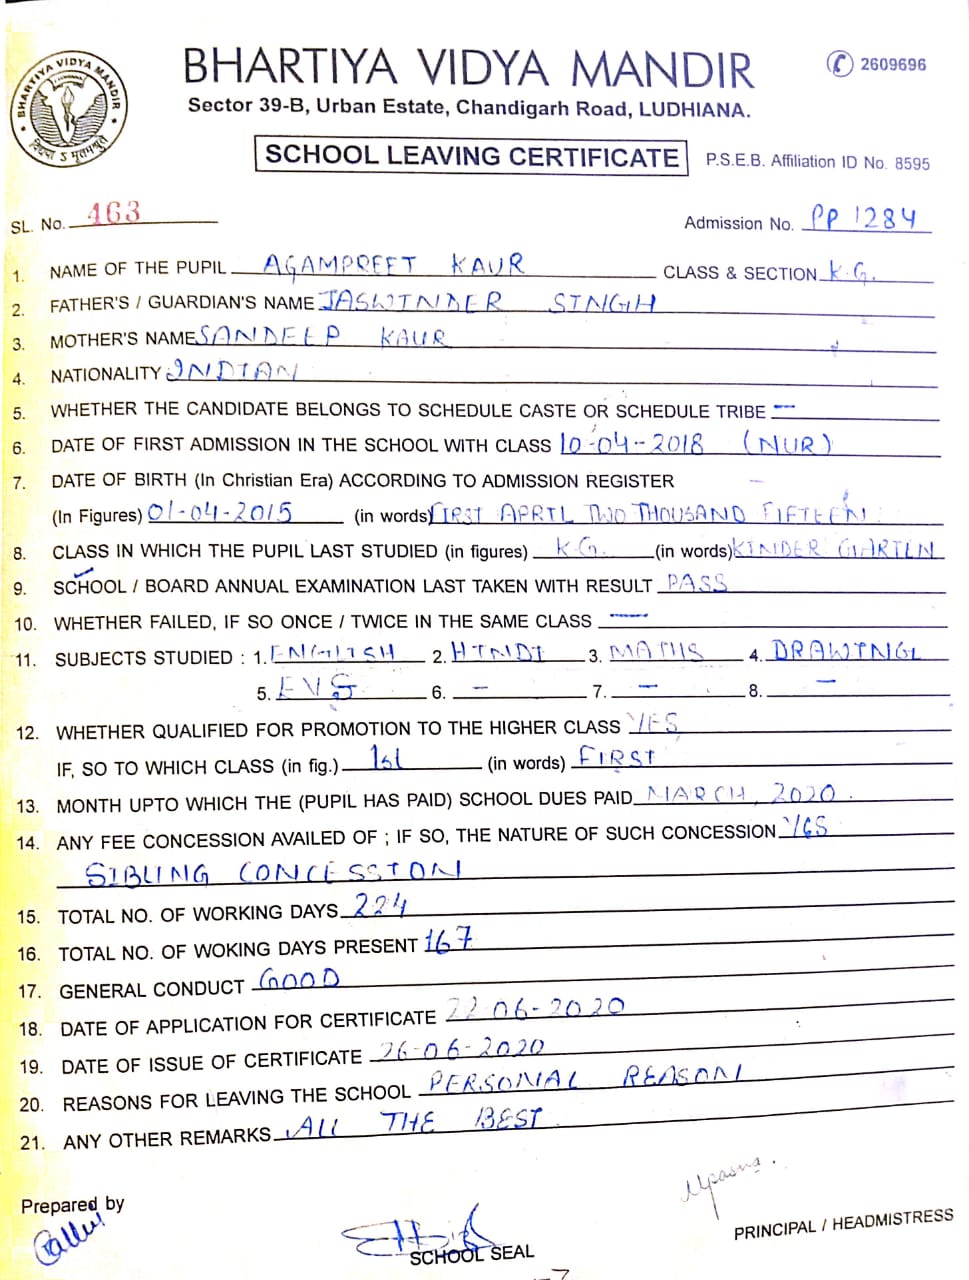 BHARTIYA VIDYA MANDIR
BHARTIYA VIDYA MANDIR
2609696
Sector 39-B, Urban Estate, Chandigarh Road, LUDHIANA.
SCHOOL LEAVING CERTIFICATE
P.S.E.B. Affiliation ID No. 8595
SL. No. 463
Admission No. PP 1284
1. NAME OF THE PUPIL AGAMPREET KAUR CLASS & SECTION K.G.
2. FATHER'S / GUARDIAN'S NAME JASWINDER SINGH
3. MOTHER'S NAME SANDEEP KAUR
4. NATIONALITY INDIAN
5. WHETHER THE CANDIDATE BELONGS TO SCHEDULE CASTE OR SCHEDULE TRIBE —
6. DATE OF FIRST ADMISSION IN THE SCHOOL WITH CLASS 10-04-2018 (NUR)
7. DATE OF BIRTH (In Christian Era) ACCORDING TO ADMISSION REGISTER
(In Figures) 01-04-2015 (in words) FIRST APRIL TWO THOUSAND FIFTEEN
8. CLASS IN WHICH THE PUPIL LAST STUDIED (in figures) K.G. (in words) KINDER GARTEN
9. SCHOOL / BOARD ANNUAL EXAMINATION LAST TAKEN WITH RESULT PASS
10. WHETHER FAILED, IF SO ONCE / TWICE IN THE SAME CLASS —
11. SUBJECTS STUDIED : 1. ENGLISH 2. HINDI 3. MATHS 4. DRAWING
5. EVS 6. — 7. — 8. —
12. WHETHER QUALIFIED FOR PROMOTION TO THE HIGHER CLASS YES
IF, SO TO WHICH CLASS (in fig.) 1st (in words) FIRST
13. MONTH UPTO WHICH THE (PUPIL HAS PAID) SCHOOL DUES PAID MARCH, 2020.
14. ANY FEE CONCESSION AVAILED OF ; IF SO, THE NATURE OF SUCH CONCESSION YES
SIBLING CONCESSION
15. TOTAL NO. OF WORKING DAYS 224
16. TOTAL NO. OF WOKING DAYS PRESENT 167
17. GENERAL CONDUCT GOOD
18. DATE OF APPLICATION FOR CERTIFICATE 22-06-2020
19. DATE OF ISSUE OF CERTIFICATE 26-06-2020
20. REASONS FOR LEAVING THE SCHOOL PERSONAL REASON
21. ANY OTHER REMARKS ALL THE BEST
Upasna.
Prepared by
PRINCIPAL / HEADMISTRESS
SCHOOL SEAL